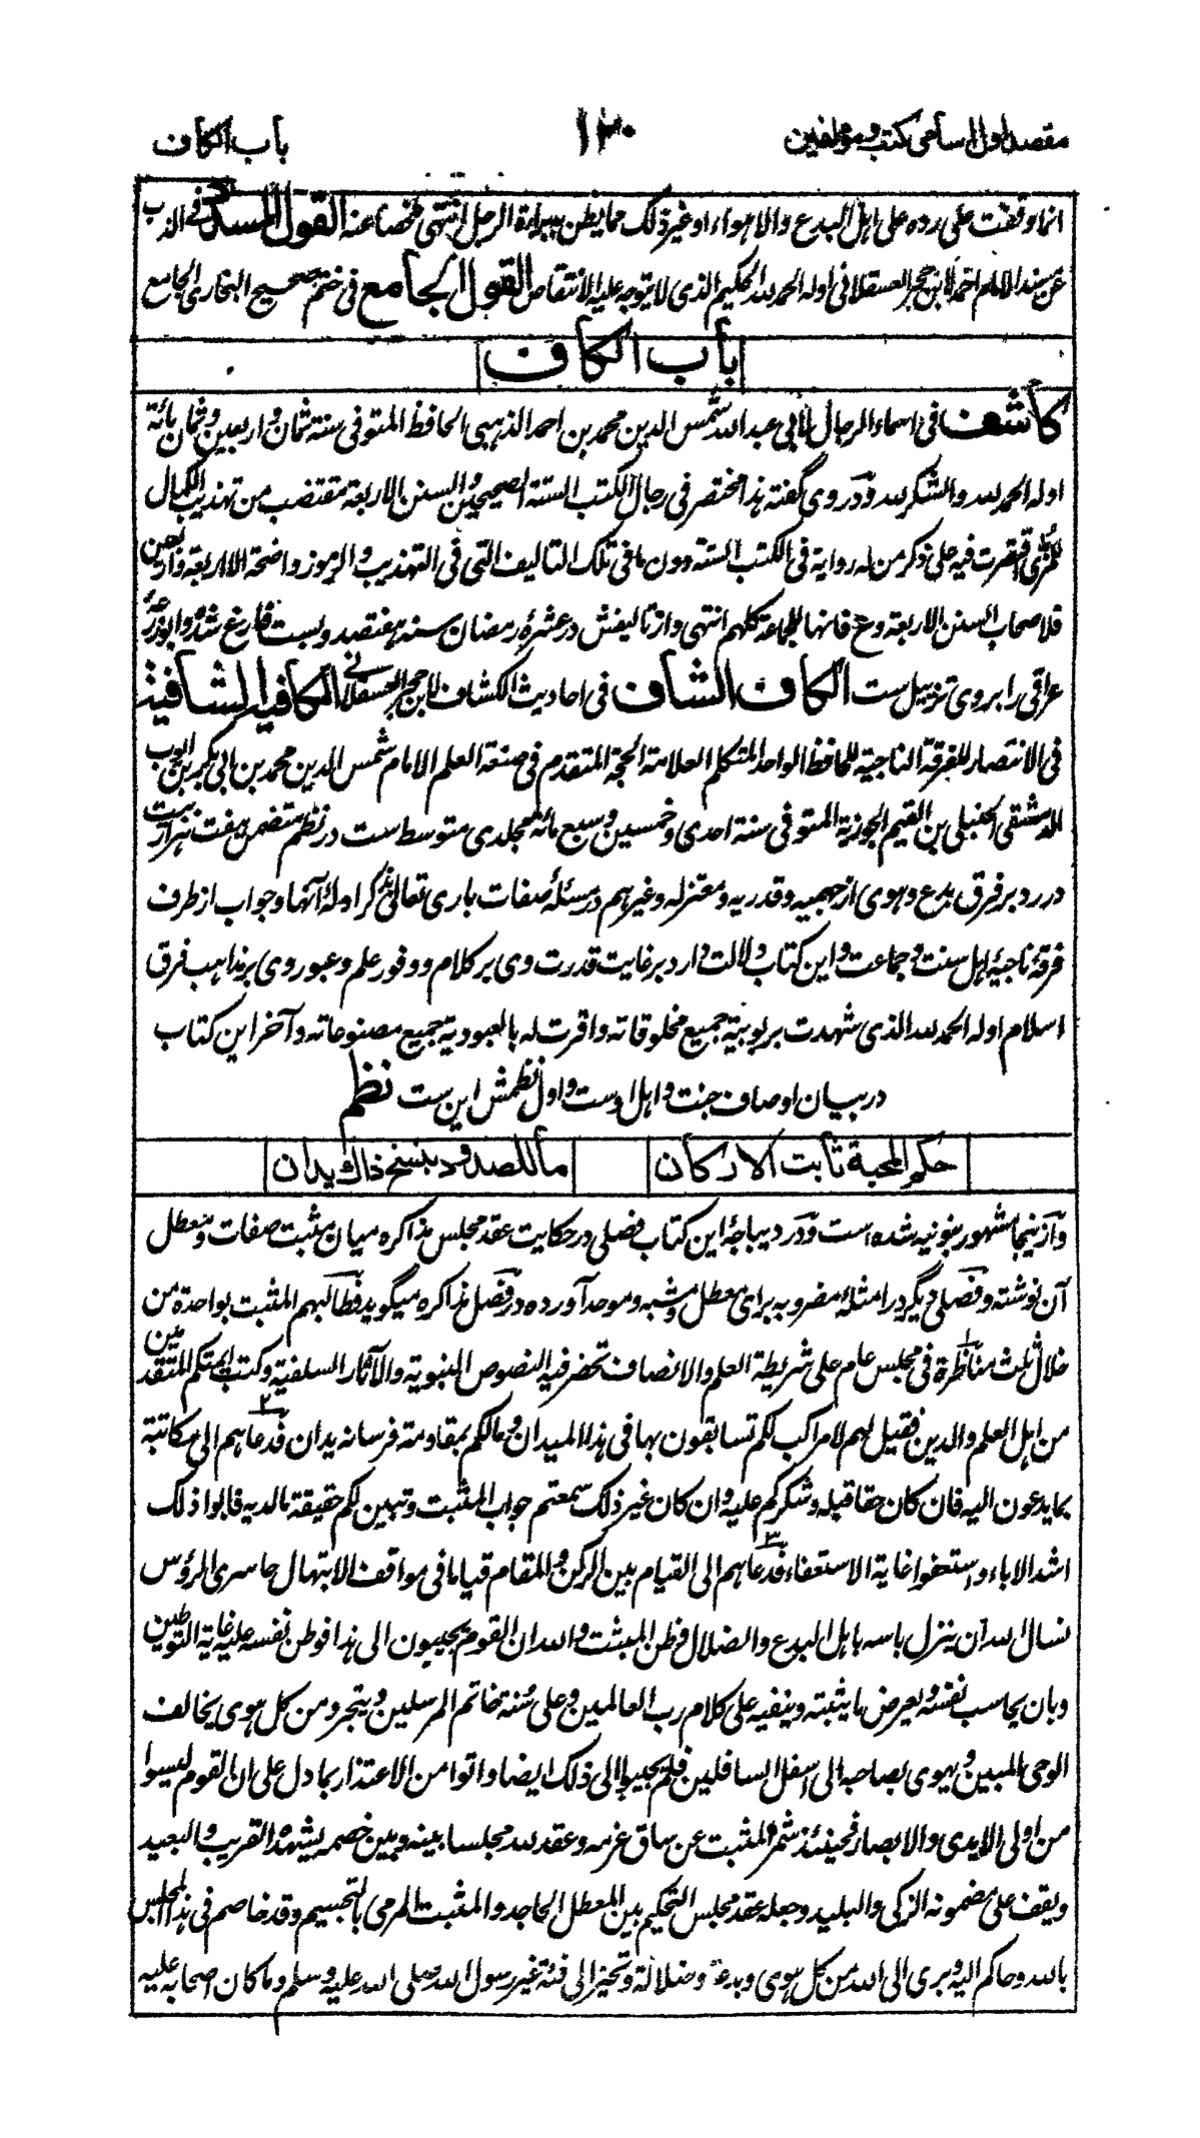 مقصد اول اسامی کتب و مؤلفین ۱۳۰ باب الکاف
انما وقفت علی رده علی اهل البدع والاهواء او غیر ذلک مما یظن ببراءة الرجل انتهی مخصا عنه القول المسدد فی الذب
عن مسند الامام احمد لابن حجر العسقلانی اوله الحمد لله الحکیم الذی لا یتوجه علیه الانتقاص القول الجامع فی ختم صحیح البخاری الجامع
باب الکاف
کاشف فی اسماء الرجال لابی عبد الله شمس الدین محمد بن احمد الذهبی الحافظ المتوفی سنة ثمان و اربعین و ثمان مائة
اوله الحمد لله والشکر لله و در وی گفته هذا مختصر فی رجال الکتب الستة الصحیحین والسنن الاربعة مقتضب من تهذیب الکمال
للمزی اقتصرت فیه علی ذکر من له روایة فی الکتب الستة دون ما فی تلک التالیف التی فی التهذیب والرموز واضحة الا اربعة
فلاصحاب السنن الاربعة و ع فانها للجماعة کلهم انتهی و از تالیفش در عشرۀ رمضان سنه هفتصد و بست فارغ شد و ابوزرعه
عراقی را بر وی تذییل ست الکاف الشاف فی احادیث الکشاف لابن حجر العسقلانی الکافیة الشافیة
فی الانتصار للفرقة الناجیة للحافظ الواحد المتکلم العلامة الحجة المتقدم فی صنعة العلم الامام شمس الدین محمد بن ابی بکر بن ایوب
الدمشقی الحنبلی بن القیم الجوزیة المتوفی سنة احدی و خمسین و سبع مائة مجلدی متوسط ست در نظم متضمن هفت هزار بیت
در رد بر فرق بدع و هوی از جهمیه و قدریه و معتزله و غیرهم در مسئلۀ صفات باری تعالی و ذکر ادلۀ آنها و جواب از طرف
فرقۀ ناجیۀ اهل سنت و جماعت و این کتاب دلالت دارد بر غایت قدرت وی بر کلام و وفور علم و عبور وی بر مذاهب فرق
اسلام اوله الحمد لله الذی شهدت بربوبیته جمیع مخلوقاته و اقرت له بالعبودیة جمیع مصنوعاته و آخر این کتاب
در بیان اوصاف جنت و اهل اوست و اول نظمش این ست نظم
حکم المحبة ثابت الارکان ما للصدود بفسخ ذاک یدان
و از ینجا مشهور بنونیه شده است و در دیباجۀ این کتاب فصلی در حکایت عقد مجلس مذاکره میان مثبت صفات و معطل
آن نوشته و فصلی دیگر در امثلۀ مضروبه برای معطل و مشبه و موحد آورده در فصل مذاکره میگوید فطالبهم المثبت بواحدة من
خلال ثلث مناظرة فی مجلس عام علی شریطة العلم والانصاف تحضر فیه النصوص النبویة والآثار السلفیة و کتب ائمتکم المتقدمین
من اهل العلم والدین فقیل لهم لا مراکب لکم تسابقون بها فی هذا المیدان و ما لکم بمقاومة فرسانه یدان فدعاهم الی مکاتبة
بما یدعون الیه فان کان حقا قبله و شکرکم علیه وان کان غیر ذلک سمعتم جواب المثبت و تبین لکم حقیقة ما لدیه فابوا ذلک
اشد الاباء و استعفوا غایة الاستعفاء فدعاهم الی القیام بین الرکن والمقام قیاما فی مواقف الابتهال حاسری الرؤس
نسال الله ان ینزل باسه باهل البدع والضلال فظن المثبت والله ان القوم یجیبون الی هذا فوطن نفسه علیه غایة التوطین
و بات یحاسب نفسه و یعرض ما یثبته و ینفیه علی کلام رب العالمین و علی سنة خاتم المرسلین و یتجرد من کل هوی یخالف
الوحی المبین و یهوی بصاحبه الی اسفل السافلین فلم یجیبوا الی ذلک ایضا و اتوا من الاعتذار بما دل علی ان القوم لیسوا
من اولی الایدی والابصار فحینئذ شمر المثبت عن ساق عزمه و عقد لله مجلسا بینه و بین خصمه یشهده القریب والبعید
و یقف علی مضمونه الزکی والبلید و جعله عقد مجلس التحکیم بین المعطل الجاحد والمثبت المرمی بالتجسیم و قد خاصم فی هذا المجلس
بالله و حاکم الیه و بری الی الله من کل هوی و بدعة و ضلالة و تحیز الی فئة غیر رسول الله صلی الله علیه و سلم و ما کان اصحابه علیه